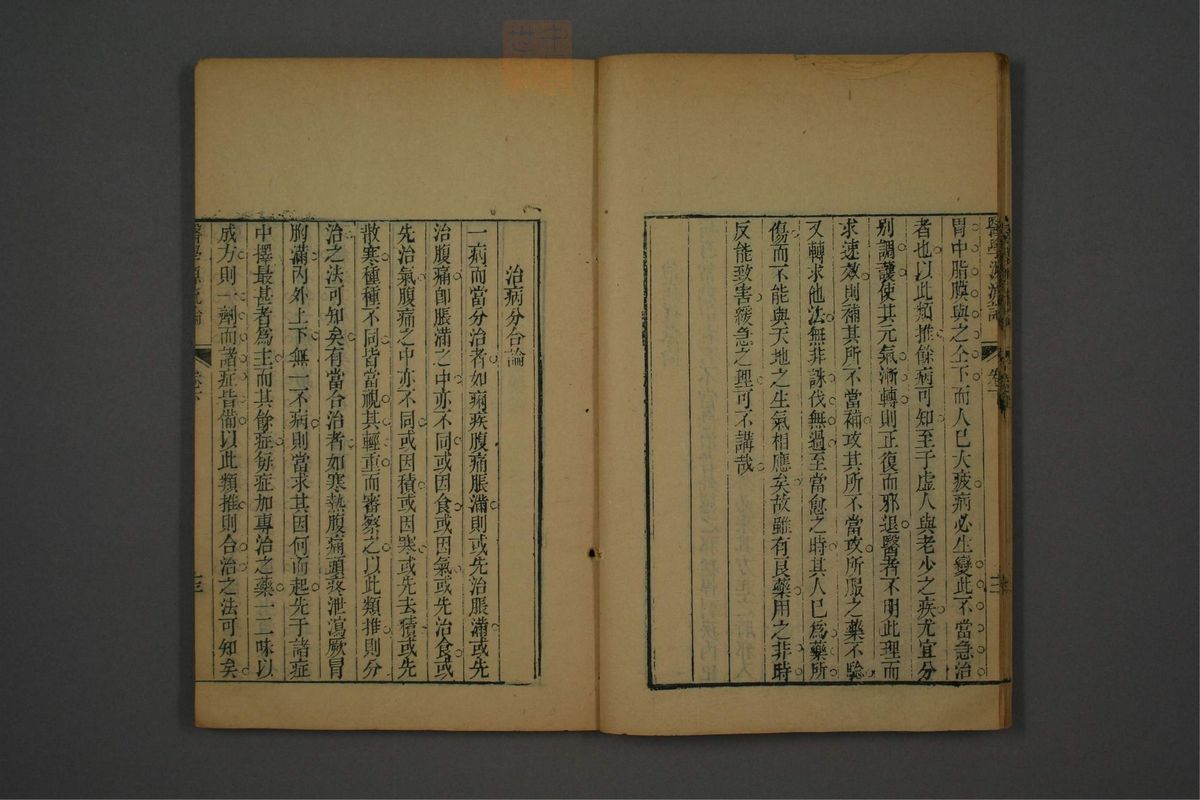 醫學源流論 卷下
胃中脂膜與之仝下而人已大疲病必生變此不當急治
者也以此類推餘病可知至于虛人與老少之疾尤宜分
別調護使其元氣漸轉則正復而邪退醫者不明此理而
求速效則補其所不當補攻其所不當攻所服之藥不騐
又轉求他法無非誅伐無過至當愈之時其人已爲藥所
傷而不能與天地之生氣相應矣故雖有良藥用之非時
反能致害緩急之理可不講哉
治病分合論
一病而當分治者如痢疾腹痛脹滿則或先治脹滿或先
治腹痛卽脹滿之中亦不同或因食或因氣或先治食或
先治氣腹痛之中亦不同或因積或因寒或先去積或先
散寒種種不同皆當視其輕重而審察之以此類推則分
治之法可知矣有當合治者如寒熱腹痛頭疼泄瀉厥冒
胸滿內外上下無一不病則當求其因何而起先于諸症
中擇最甚者爲主而其餘症每症加專治之藥一二味以
成方則一劑而諸症皆備以此類推則合治之法可知矣
醫學源流論 卷下